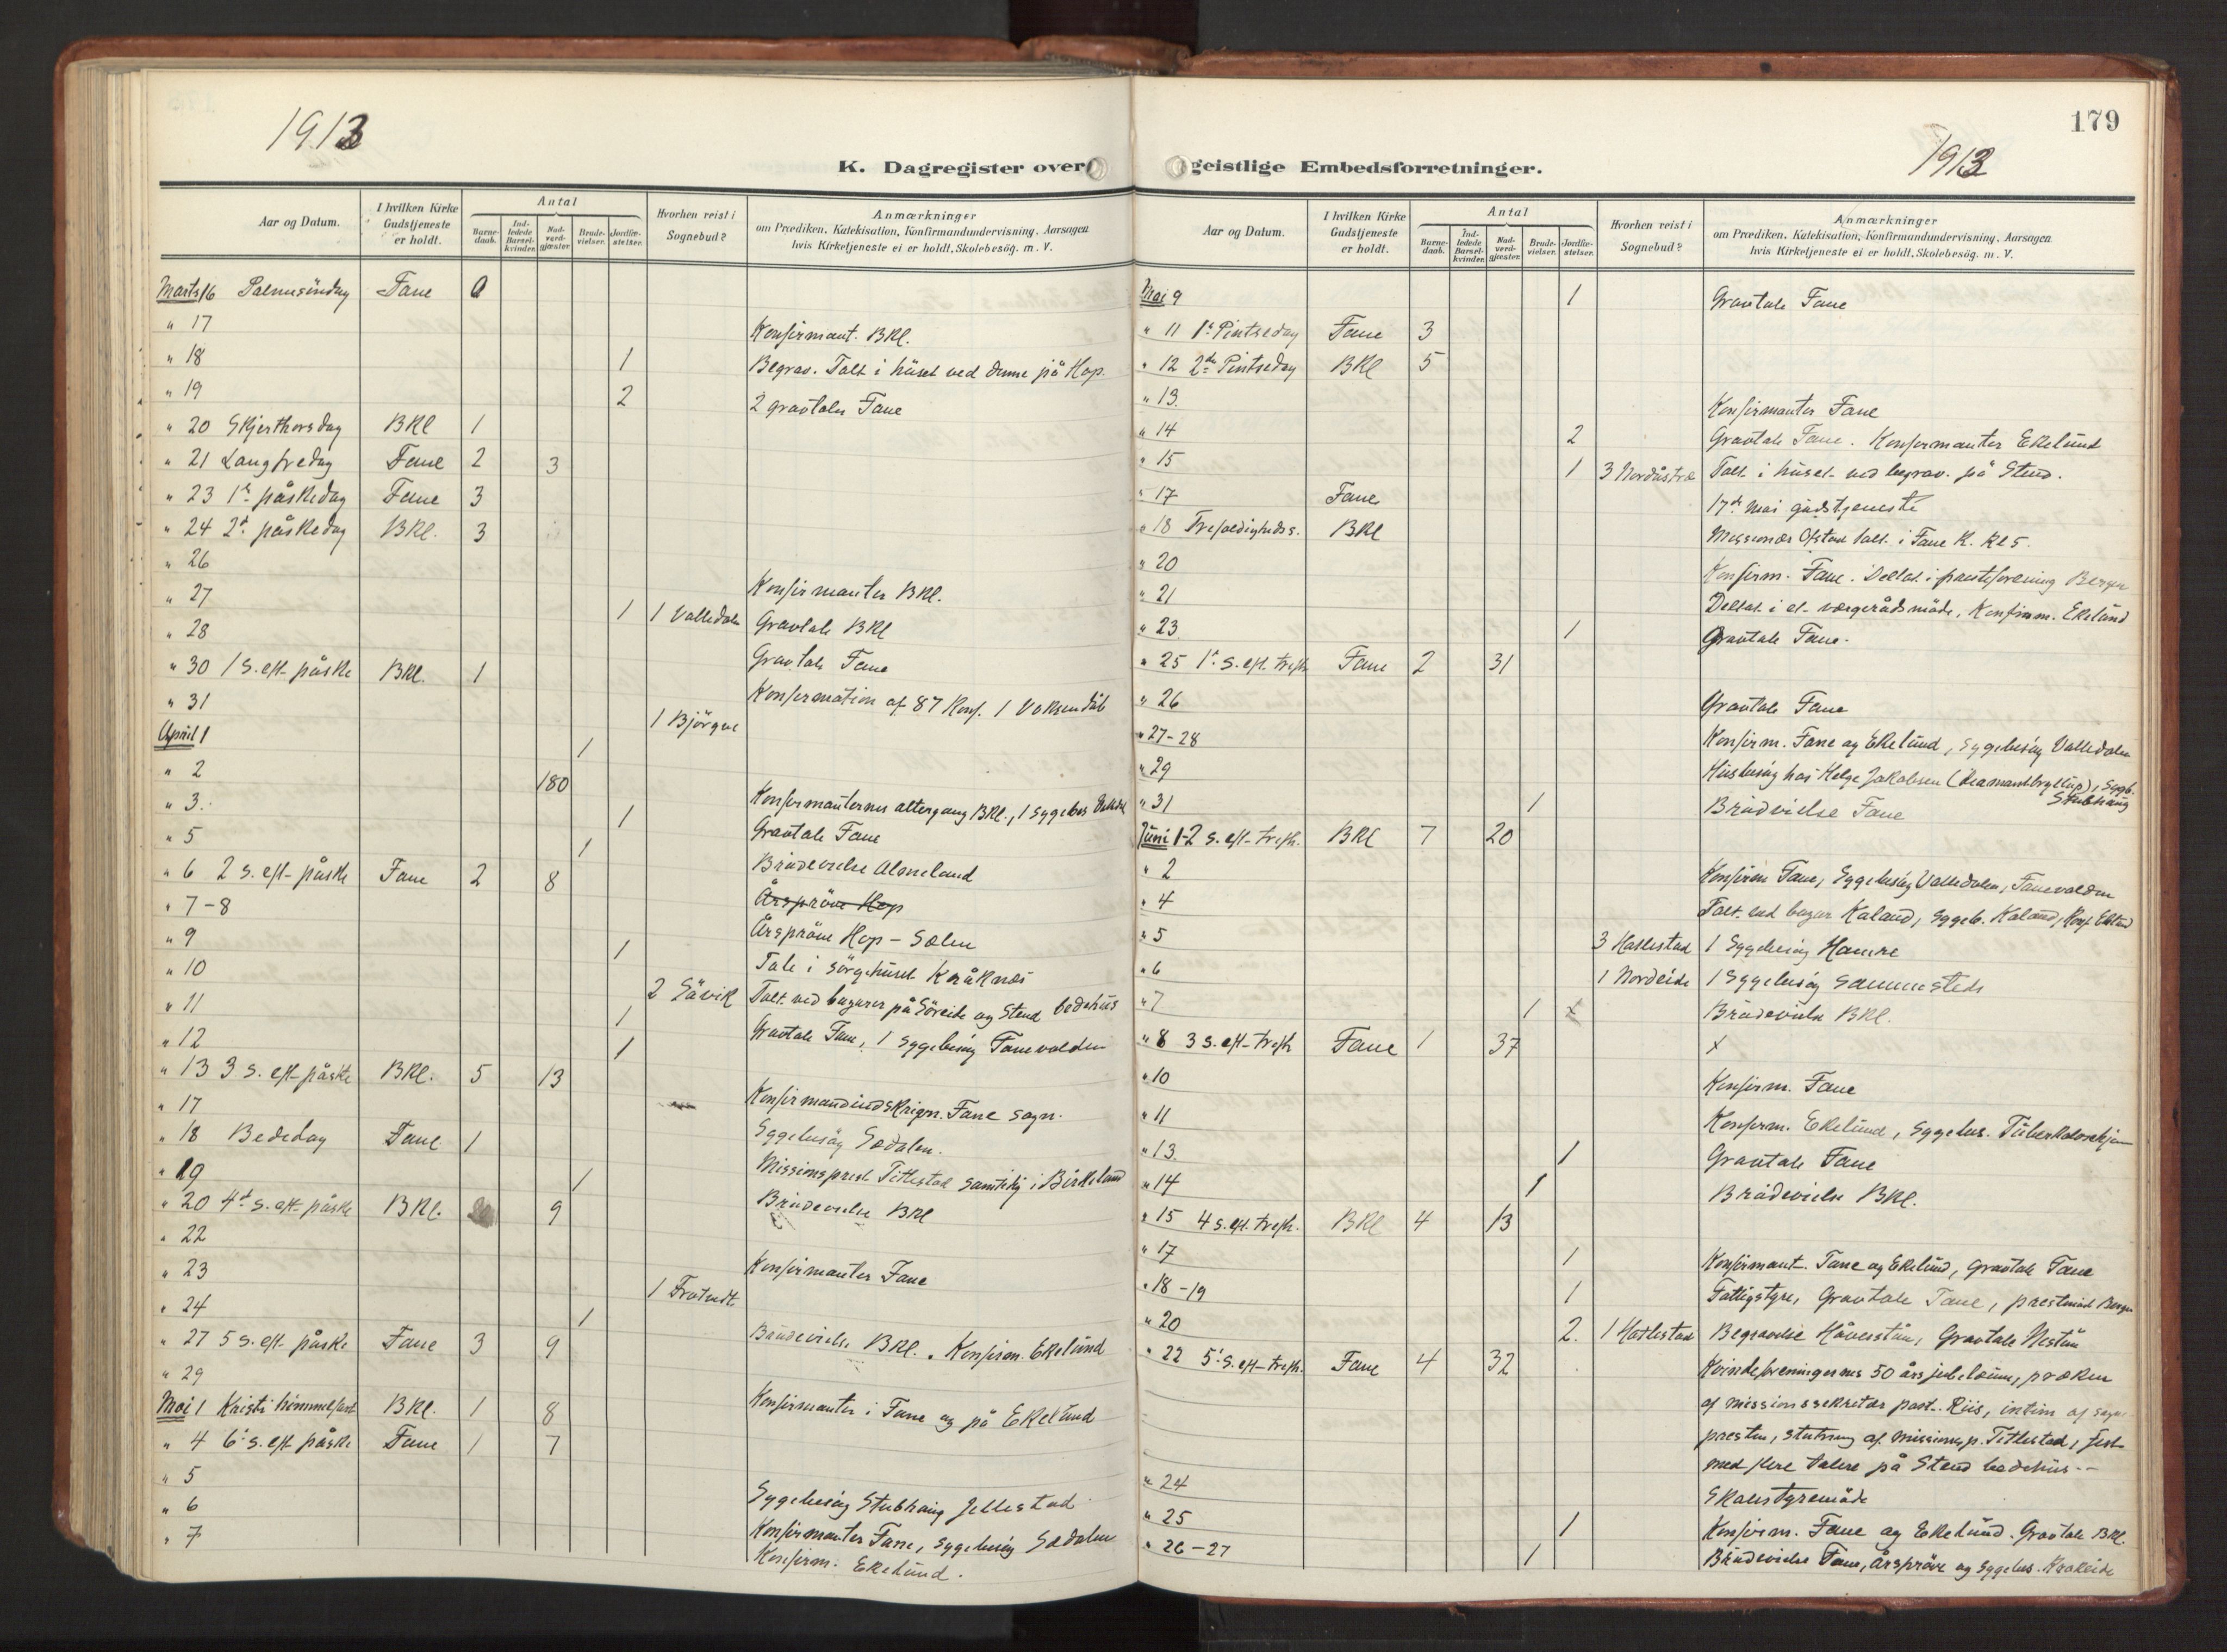 1913
K. Dagregister over
Aar og Datum.
I hvilken Kirke Gudstjeneste er holdt.
Antal
Barne-daab.
Ind-ledede Barsel-kvinder.
Nad-verd-gjæster.
Brude-vielser.
Jordfæ-stelser.
Hvorhen reist i Sognebud?
Anmærkninger
om Prædiken, Katekisation, Konfirmandundervisning, Aarsagen
hvis Kirketjeneste ei er holdt, Skolebesög. m. V.
Marts 16 Palmesöndag Fane 0
" 17 Konfirmant. BKl.
" 18 1 Begrav. Talt i huset ved denne på Hop.
" 19 2 2 gravtaler Fane
" 20 Skjerthorsdag BKl 1
" 21 Langfredag Fane 2 3
" 23 1ste påskedag Fane 3
" 24 2d. påskedag BKl. 3
" 26
" 27 Konfirmanter BKl.
" 28 1 1 Valledalen Gravtale BKl
Gravtale Fane
" 30 1 S. eft. påske BKl. 1
" 31 Konfirmation af 87 Konf. 1 Voksendåb
April 1 1 1 Björgve
" 2 180
" 3. 1 Konfirmanternes altergang BKl., 1 sygebes
" 5 1 Gravtale Fane
" 6 2 s. eft. påske Fane 2 8 Brudevielse
" 7-8 Årspröve Hop
" 9 1 Årspröve Hop - Sælen
" 10 Tale i sörgehuset Kråknes
" 11 1 2 Sävik Talt ved bazarer på Söreide og Stend bedehus
" 12 1 Gravtale Fane, 1 sygebesög Fanevolden
" 13 3 s. eft. påske BKl. 5 13
" 17 Konfirmandindskrivn. Fane sogn.
" 18 Bededag Fane 1 Sygebesög Sædalen.
" 19 1 Missionsprest Titlestad samtidig i Birkeland
" 20 4d s. eft. påske BKl. 9 Brudevielse BKl
" 22
" 23 Konfirmanter Fane
" 24 1 1
" 27 5 s. eft. påske Fane 3 9 Brudevielse BKl. Konfirm. Ekelund
" 29
Mai 1 Kristi himmelfart BKl. 1 8 Konfirmanter i Fane og på Ekelund
" 4 6. s. eft påske Fane 1 7
" 5
" 6 Sygebesög Stubhaug Jellestad
" 7 Konfirmanter Fane, sygebesög Sædalen
Konfirm. Ekelund.
179
1913
geistlige Embedsforretninger.
Aar og Datum.
I hvilken Kirke Gudstjeneste er holdt.
Antal
Barne-daab.
Ind-ledede Barsel-kvinder.
Nad-verd-gjæster.
Brude-vielser.
Jordfæ-stelser.
Hvorhen reist i Sognebud?
Anmærkninger
om Prædiken, Katekisation, Konfirmandundervisning, Aarsagen
hvis Kirketjeneste ei er holdt, Skolebesög. m. V.
Mai 9 1 Gravtale Fane
" 11 1s Pintsedag Fane 3
" 12 2de Pintsedag BKl 5
" 13. Konfirmanter Fane
" 14 2 Gravtale Fane. Konfirmanter Ekelund
" 15 1 3 Nordåstræ Talt i huset ved begrav. på Stend.
" 17 Fane 17de Mai gudstjeneste
" 18 Trefoldigheds s. BKl Missionær Ofstad talt i Fane K. Kl 5.
" 20 Konfirm. Fane. Deltat i præsteforening Bergen
" 21 Deltat i et vergerådsmöde, Konfirmm. Ekelund
" 23 1 Gravtale Fane.
" 25 1. s. eft. trefh Fane 2 31
" 26 Gravtale Fane
" 27-28 Konfirm. Fane og Ekelund, Sygebesög Valledalen
" 29 Husbesög hos Helge Jakobsen (Diamantbryllup), Sygb. Stubhaug
" 31 1 Brudevielse Fane
Juni 1 2 s. eft. trefh. BKl 7 20
" 2 Konfirm Fane, Sygebesög Valledalen, Fanevolden
" 4 Talt ved bazar Kaland, sygeb. Kaland, Konf. Eklund
" 5 3 Hatlestad 1 Sygebesög Hamre
" 6 1 Nordeide 1 Sygebesög sammesteds
" 7 1 x Brudevielse BKl.
" 8 3 s. eft. trefh Fane 1 37 x
" 10 Konfirm. Fane
" 11 Konfirm. Ekelund, sygebes.
" 13. 1 Gravtale Fane
" 14 1 Brudevielse BKl.
" 15 4 s. eft. trefh. BKl 4 13
" 17 1 Konfirmant. Fane og Ekelund, Gravtale Fane
" 18-19 1 Fattigstyre, Gravtale Fane, prestemöde Bergen
" 20 2. 1 Hatlestad Begravelse Håverstun, Gravtale Nestun
" 22 5. s. eft. trefh. Fane 4 32 Kvindeforeningernes 50 års jubelæum, præken
af missionssekretær past. Riis, intim. af sogne-
presten, slutning af missionsp. Titlestad, fest
med flere talere på Stend bedehus --
" 24 Skolestyremöde
" 25 1 Konfirm. Fane og Ekelund. Gravtale BKl.
" 26-27 1 Brudevielse Fane, Årspröve og sygebes. Krokeide